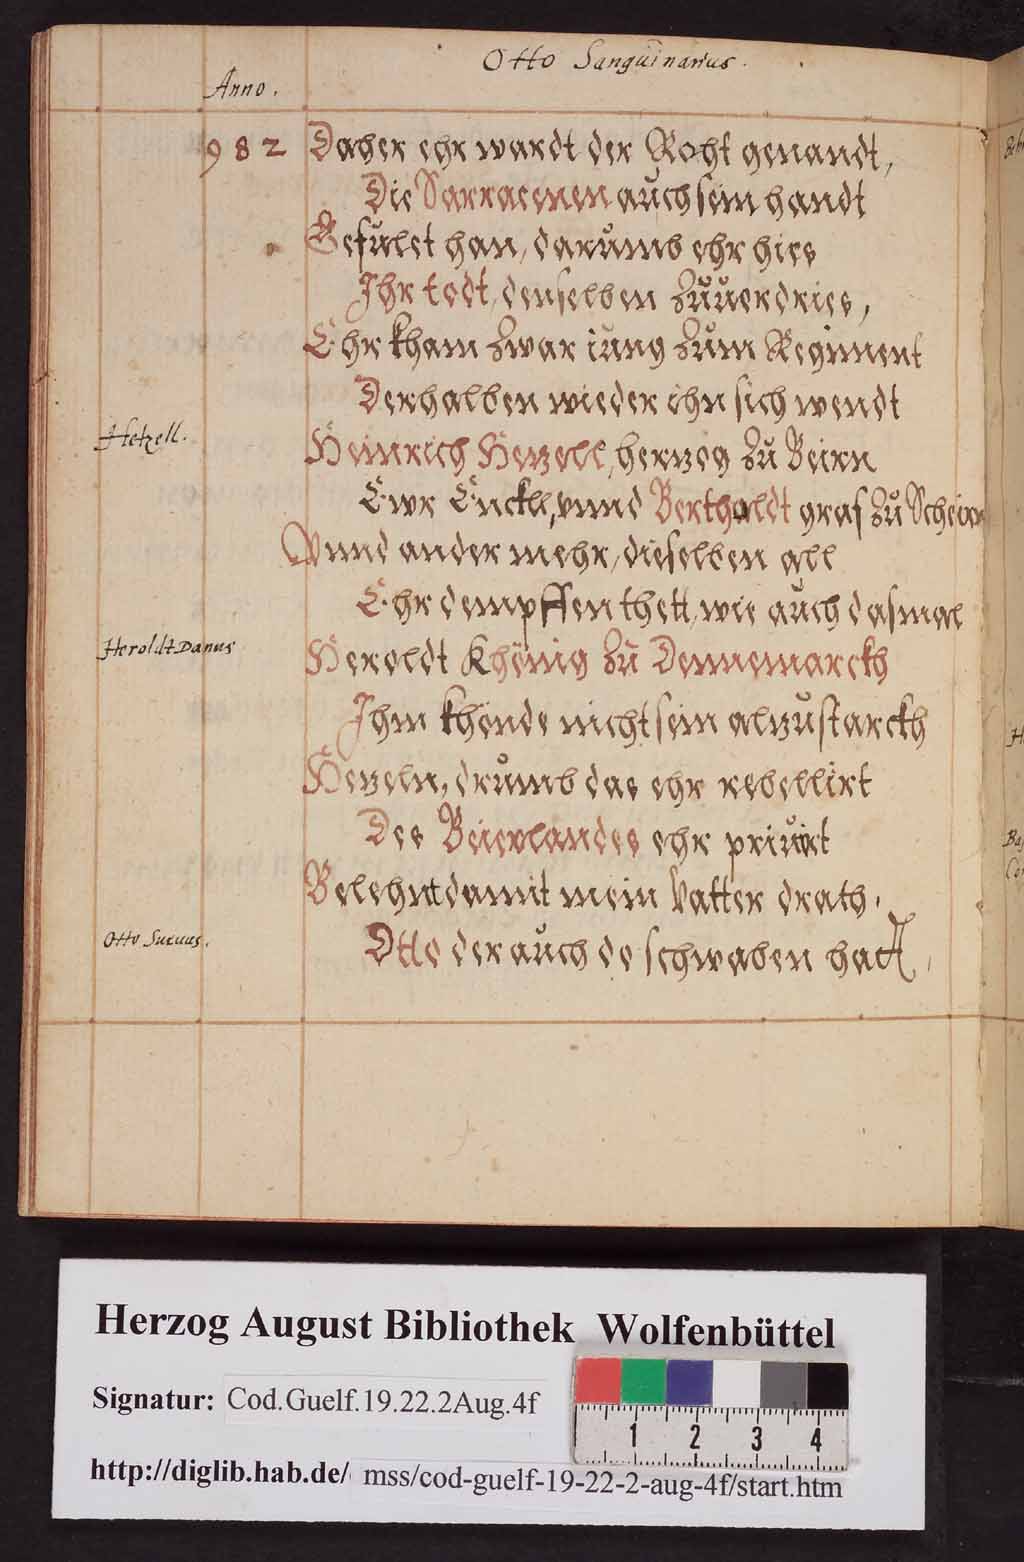 Otto Sanguinarius.
Anno.
982 Daher ehr wardt der Roht genandt,
Die Sarracenen auch sein handt
Gefulet han, darumb ehr hies
Ihr todt, denselben zuuerdries,
Ehr kham zwar iung zum Regiment
Derhalben wieder ihn sich wendt
Hetzell.
Heinrich Hezell, herzog zu Beirn
Ewr Enckll, vnnd Bertholdt graf zu Scheirn
Vnnd ander mehr, dieselben all
Ehr dempffen thett, wie auch dasmal
Heroldt Danus
Heroldt Khönig zu Dennemarckh
Ihm khönde nicht sein alzu starckh
Hezeln, drumb das ehr rebellirt
Des Beierlandes ehr priuirt
Belehnt damit mein Vatter drath.
Otto Sueuus.
Otto der auch do schwaben hatt,
Herzog August Bibliothek Wolfenbüttel
Signatur: Cod.Guelf.19.22.2Aug.4f
1 2 3 4
http://diglib.hab.de/ mss/cod-guelf-19-22-2-aug-4f/start.htm